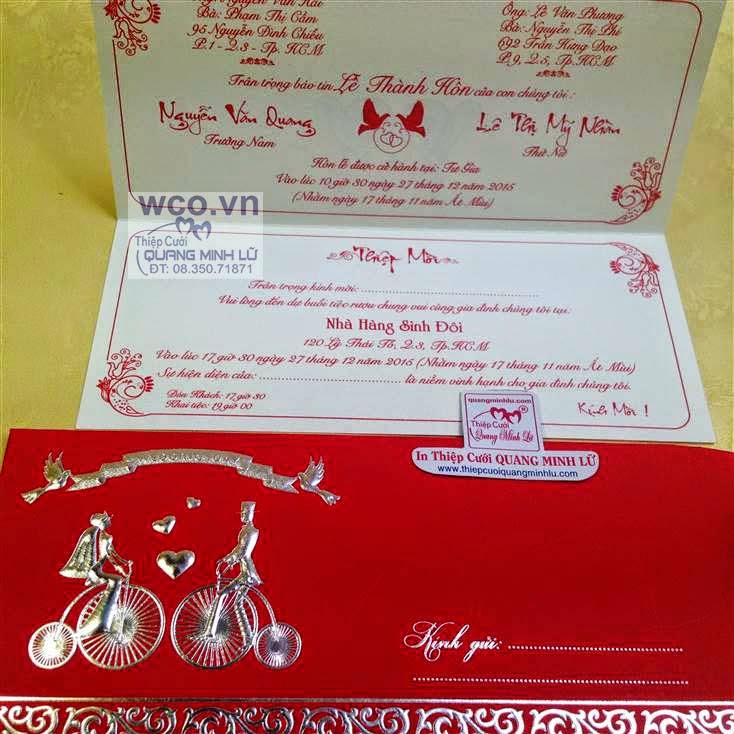 Ông: Nguyễn Văn Hải
Bà: Phạm Thị Cẩm
95 Nguyễn Đình Chiểu
P.1 - Q.3 - Tp. HCM
Ông: Lê Văn Phương
Bà: Nguyễn Thị Phi
692 Trần Hưng Đạo
P.9, Q.5, Tp.HCM
Trân trọng báo tin Lễ Thành Hôn của con chúng tôi :
Nguyễn Văn Quang
Trưởng Nam
Lê Thị Mỹ Nhàn
Thứ Nữ
Hôn lễ được cử hành tại: Tư Gia
Vào lúc 10 giờ 30 ngày 27 tháng 12 năm 2015
(Nhằm ngày 17 tháng 11 năm Ất Mùi)
wco.vn
Thiệp Cưới
QUANG MINH LỮ
ĐT: 08.350.71871
Thiệp Mời
Trân trọng kính mời:
Vui lòng đến dự buổi tiệc rượu chung vui cùng gia đình chúng tôi tại:
Nhà Hàng Sinh Đôi
120 Lý Thái Tổ, Q.3, Tp.HCM
Vào lúc 17 giờ 30 ngày 27 tháng 12 năm 2015 (Nhằm ngày 17 tháng 11 năm Ất Mùi)
Sự hiện diện của: là niềm vinh hạnh cho gia đình chúng tôi.
Đón Khách: 17 giờ 30
Khai tiệc: 19 giờ 00
Kính Mời !
quangminhlu.com
Thiệp Cưới
Quang Minh Lữ
In Thiệp Cưới QUANG MINH LỮ
www.thiepcuoiquangminhlu.com
Kính gửi: